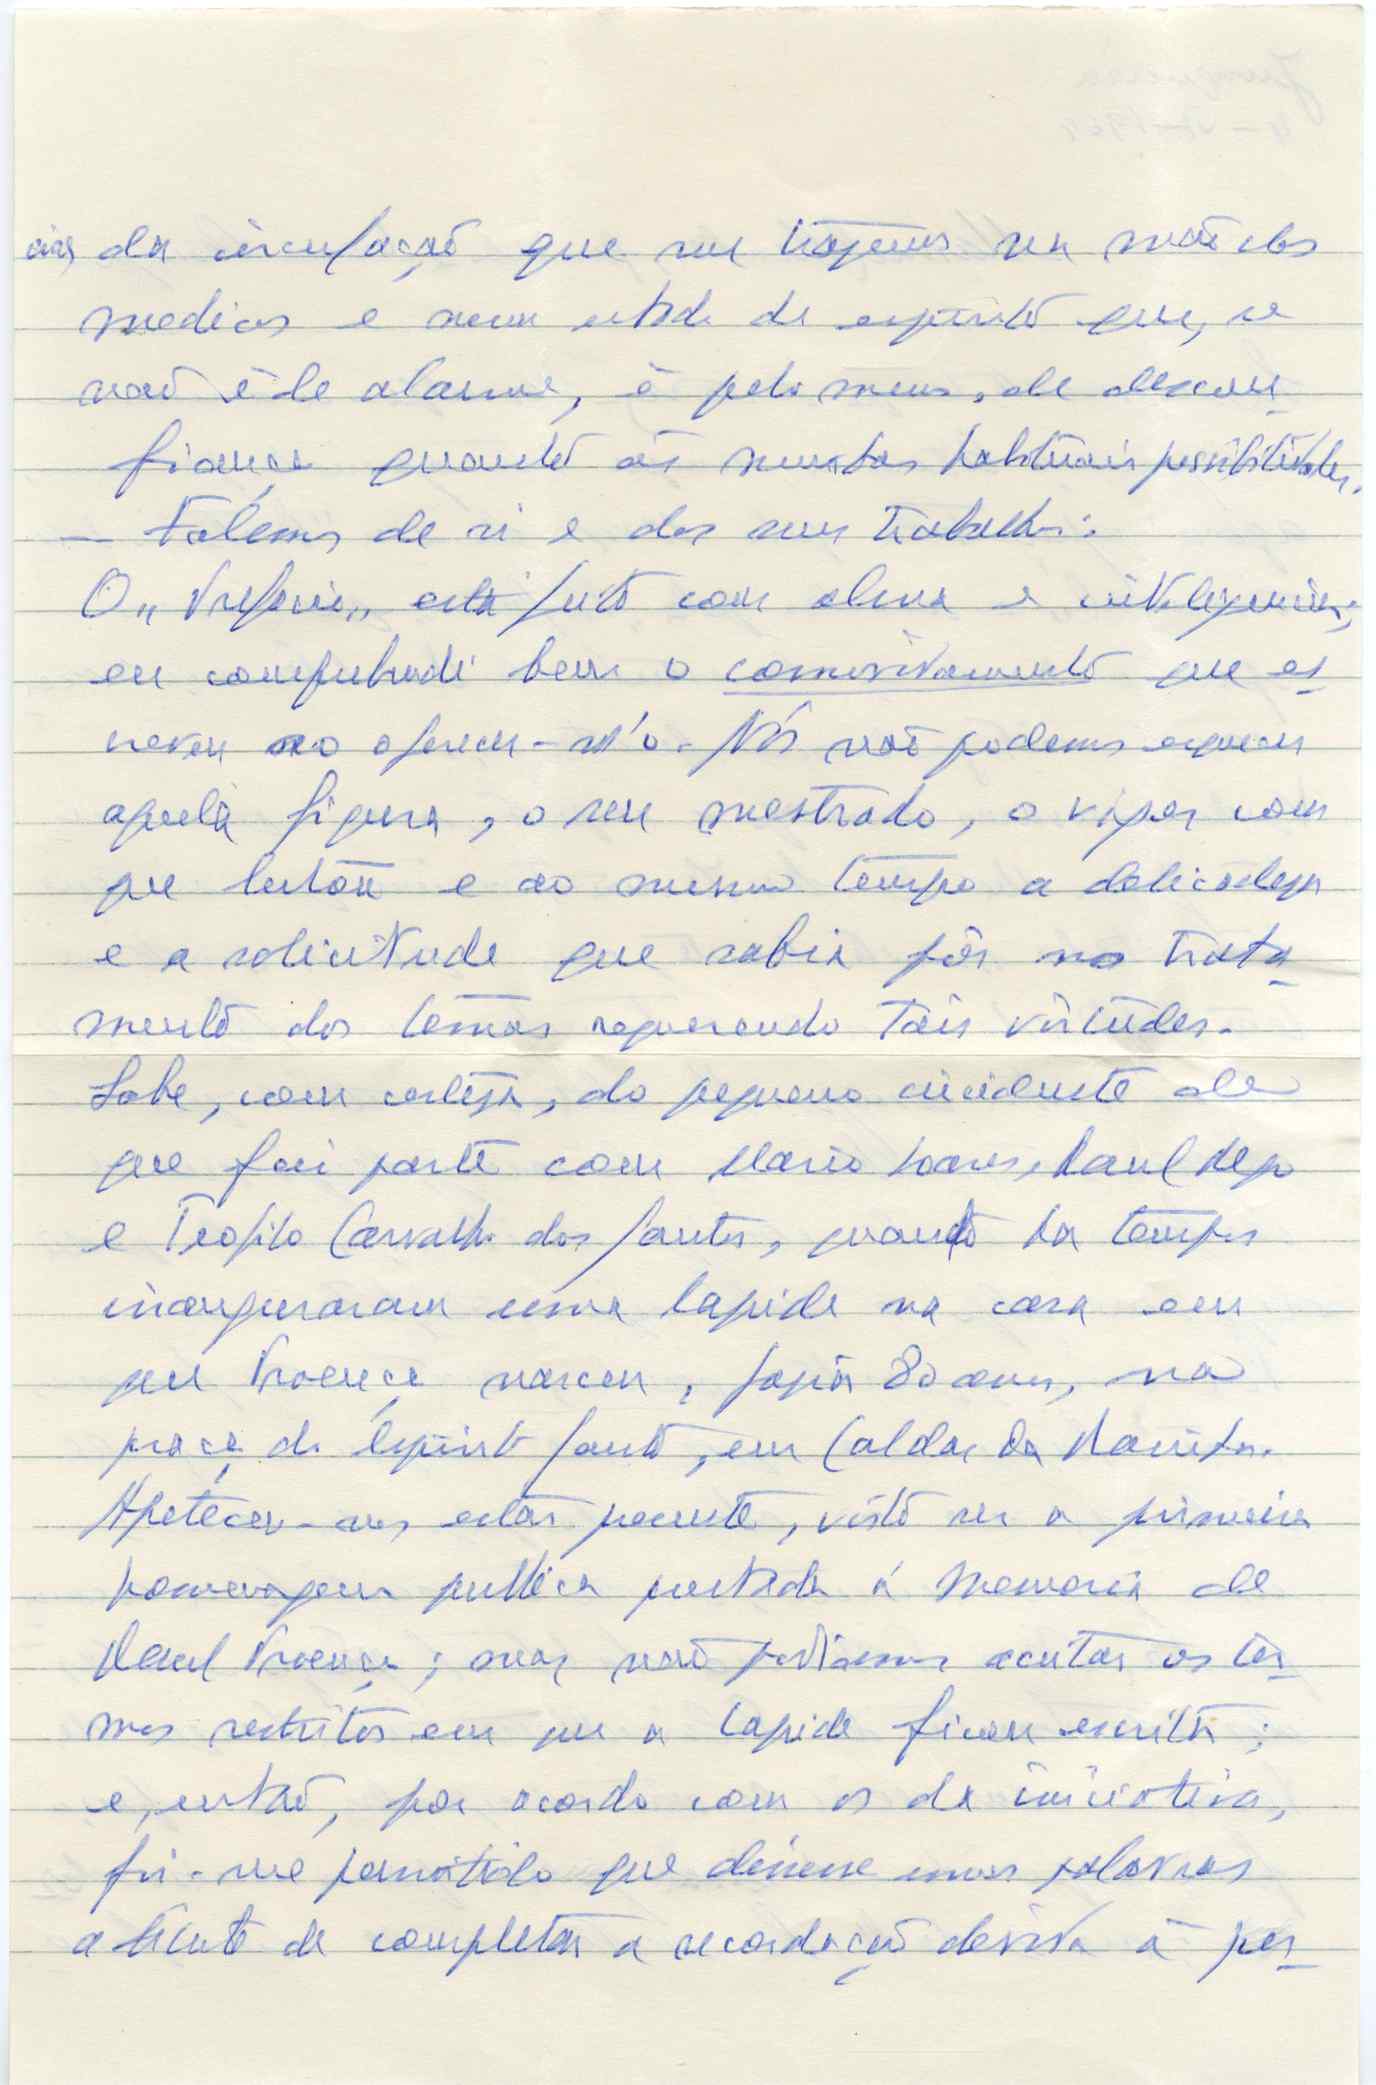 cias da circulação que me trazem na mão dos
medicos e num estado de espirito que, se
não é de alarme, é pelo menos, de descon
fiança quanto ás minhas habituais possibilidades.
— Falemos de si e dos seus trabalhos:
O „Prefacio„ está feito com alma e inteligencia;
eu compreendi bem o comovidamente que es
creveu ao oferecer-m'o. Nós não podemos esquecer
aquela figura, o seu mestrado, o vigor com
que lutou e ao mesmo tempo a delicadeza
e a solicitude que sabia pôr no trata
mento dos temas requerendo tais virtudes.
Sabe, com certeza, do pequeno incidente de
que fui parte com Mario Soares, Raul Rego
e Teofilo Carvalho dos Santos, quando ha tempos
inauguraram uma lapide na casa em
que Proença nasceu, fazia 80 anos, na
praça do Espirito Santo, em Caldas da Rainha.
Apeteceu-nos estar presente, visto ser a primeira
homenagem publica prestada á memoria de
Raul Proença; mas não podiamos aceitar os ter
mos restritos em que a lapide ficou escrita;
e, então, por acordo com os da iniciativa,
foi-me permitido que dissesse umas palavras
a tento de completar a recordação devida á pes